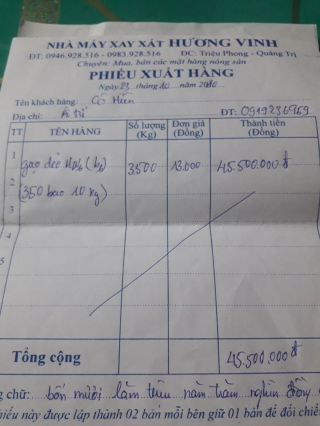 NHÀ MÁY XAY XÁT HƯƠNG VINH
ĐT: 0946.928.516 - 0983.928.516 ĐC: Triệu Phong - Quảng Trị
Chuyên: Mua, bán các mặt hàng nông sản
PHIẾU XUẤT HÀNG
Ngày 23 tháng 10 năm 2010
Tên khách hàng: Cô Hiền
Địa chỉ: Ái Tử ĐT: 0919236969
TT TÊN HÀNG Số lượng (Kg) Đơn giá (Đồng) Thành tiền (Đồng)
1 gạo dẻ 3500 13.000 45.500.000 đ
2 (350 bao 10 kg)
3
4
5
Tổng cộng 45.500.000 đ
g chữ: bốn mươi lăm triệu năm trăm nghìn đồng
hiếu này được lập thành 02 bản mỗi bên giữ 01 bản để đối chiế